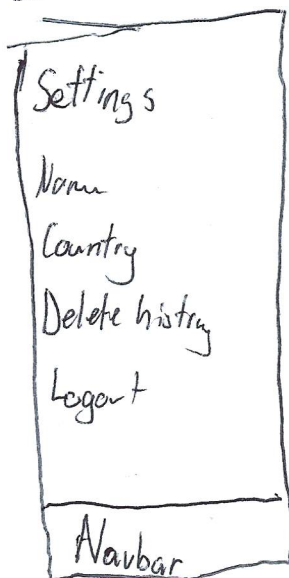 Settings
Name
Country
Delete history
Logout
Navbar